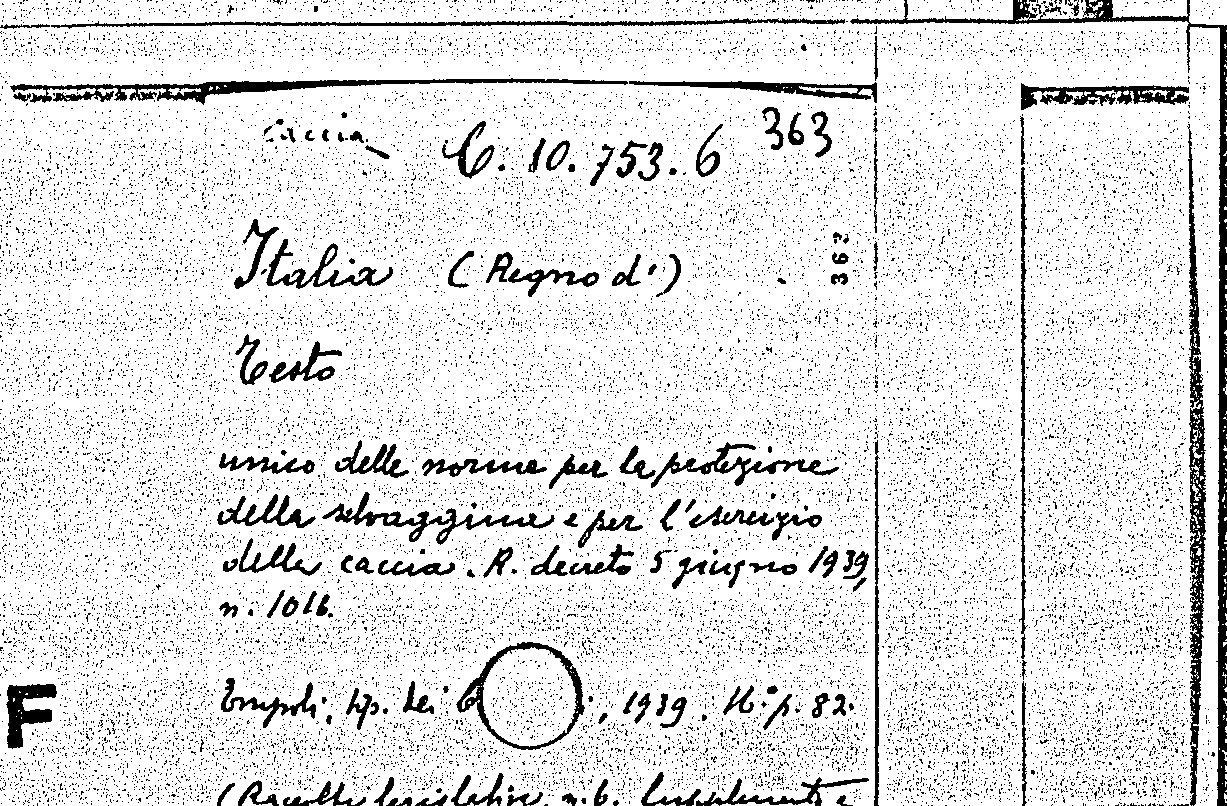 caccia
C. 10. 753. 6 363
Italia (Regno d')
362
Testo
unico delle norme per la protezione
della selvaggina e per l'esercizio
della caccia. R. decreto 5 giugno 1939,
n. 1016.
F
Empoli, tip. dei , 1939. 16° p. 82.
(Raccolta legislativa, n. 6. Supplemento